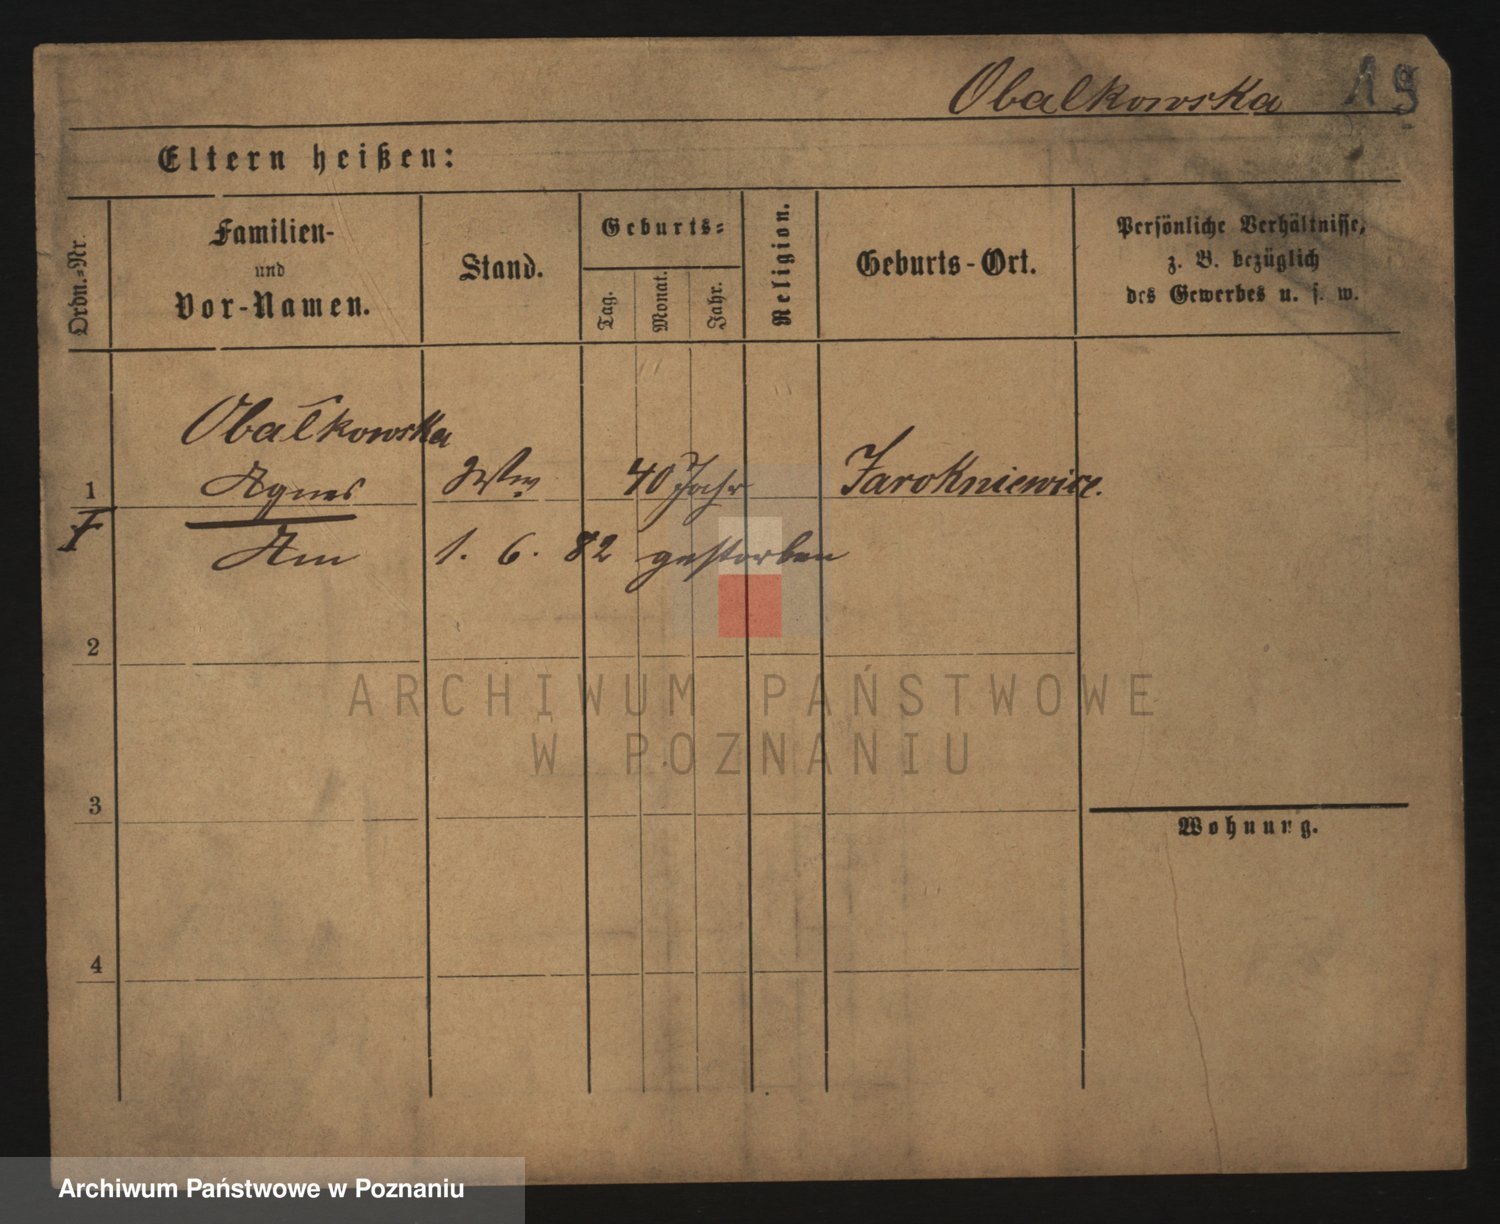 Obalkowska 19
Eltern heißen:
Ordn.=Nr.
Familien-
und
Vor-Namen.
Stand.
Geburts=
Tag.
Monat.
Jahr.
Religion.
Geburts-Ort.
Persönliche Verhältnisse,
z. B. bezüglich
des Gewerbes u. s. w.
Obalkowska
1 Agnes Ww 40 Jahr Jarokniewice.
Am 1. 6. 82 gestorben
2
3
4
Wohnung.
ARCHIWUM PAŃSTWOWE
W POZNANIU
Archiwum Państwowe w Poznaniu